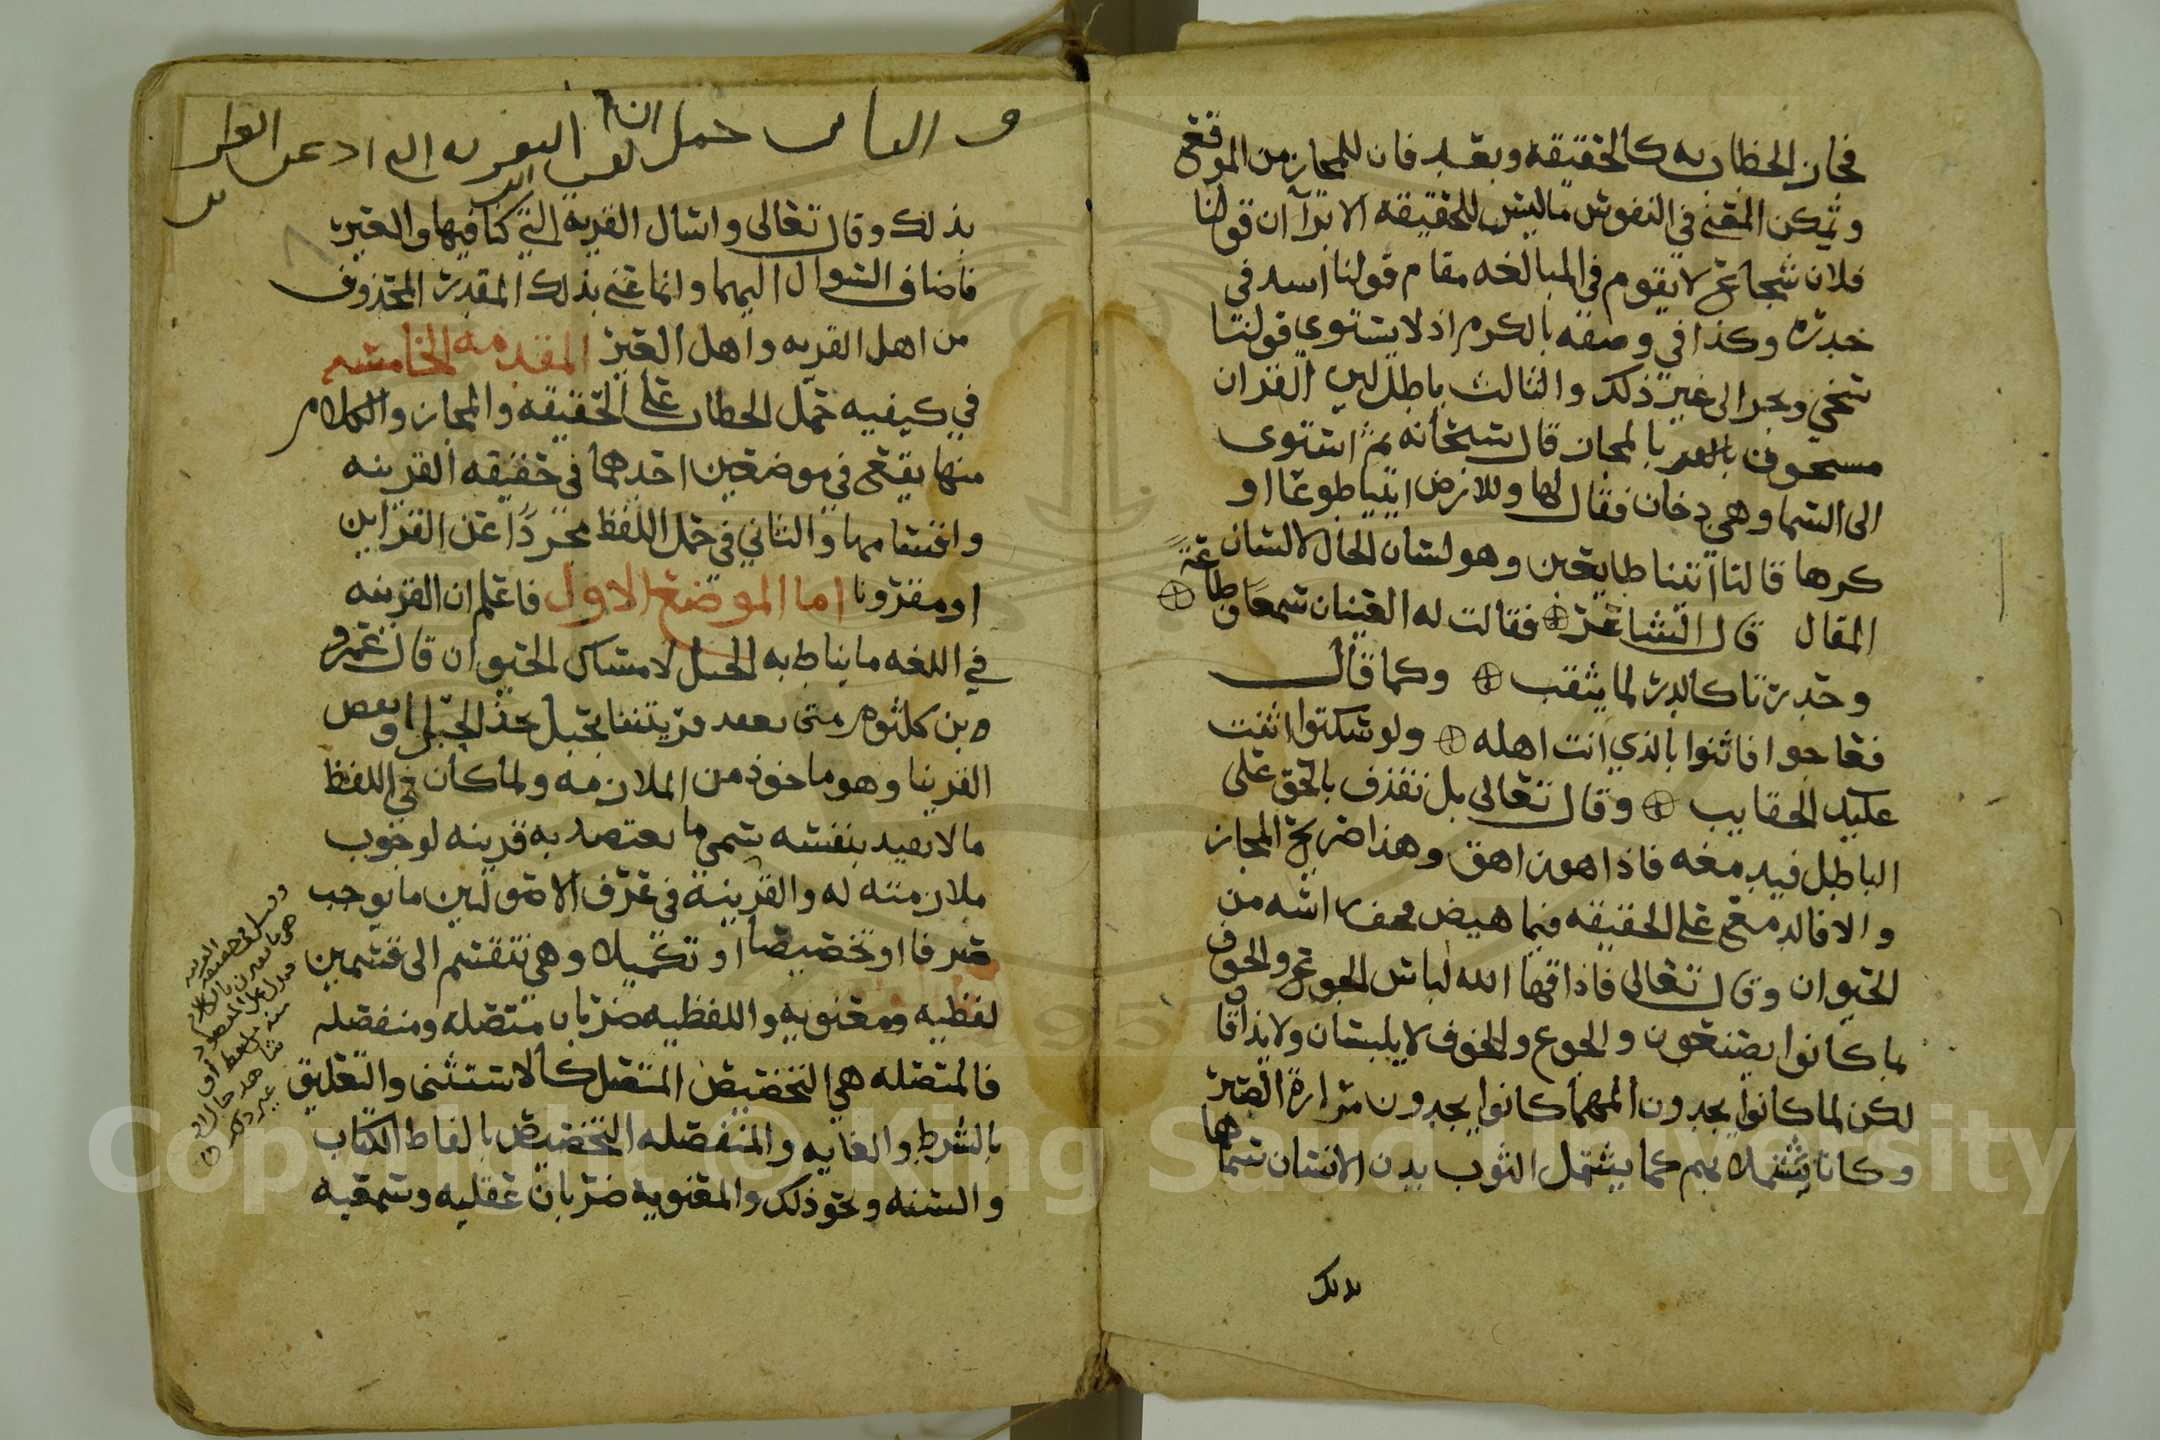 فجاز الخطاب به كالحقيقه وبعد فان للمجاز من الموقع
وتمكن المعنى في النفوس ما ليس للحقيقه الا ترا ان قولنا
فلان شجاع لا يقوم في المبالغه مقام قولنا اسد في
خدره وكذا في وصفه بالكرم اذ لا يستوي قولنا
سخي وبحر الى غير ذلك والثالث باطل لان القران
مشحون بالمجاز قال سبحانه ثم استوى
الى السما وهي دخان فقال لها وللارض ايتيا طوعا او
كرها قالتا اتينا طايعين وهو لسان الحال لا لسان
المقال قال الشاعر فقالت له العينان سمعا وطاعة
وحدرتا كالدر لما يثقب وكما قال
فعاجوا فاثنوا بالذي انت اهله ولو سكتوا اثنت
عليك الحقايب وقال تعالى بل نقذف بالحق على
الباطل فيدمغه فاذا هو زاهق وهذا صريح المجاز
والا فالدمغ على الحقيقه فيما هيض راسه من
الحيوان وقال تعالى فاذاقها الله لباس الجوع والخوف
بما كانوا يصنعون والجوع والخوف لا يلبسان ولا يذاقا
لكن لما كانوا يجدون المهما كانوا يجدون مرارة الصبر
وكانا يشتملا بهم كما يشتمل الثوب بدن الانسان سماها
بذلك
و الباس حمل
بذلك وقال تعالى واسال القريه التي كنا فيها والعير
فاضاف السوال اليهما وانما عنى بذلك المقدر المحذوف
من اهل القريه واهل العير المقدمه الخامسه
في كيفيه حمل الخطاب على الحقيقه والمجاز والكلام
منها يقع في موضعين احدهما في حقيقه القرينه
واقسامها والثاني في حمل اللفظ مجردا عن القراين
او مقرونا اما الموضع الاول فاعلم ان القرينه
في اللغه ما يناط به الحبل لامساك الحيوان قال عمرو
بن كلثوم متى نعقد قريتنا بحبل نجذ الحبل او نقص
القرينا وهو ماخوذ من الملازمه ولما كان في اللفظ
ما لا يفيد بنفسه سمي ما يعتضد به قرينه لوجوب
ملازمته له والقرينة في عرف الاصوليين ما يوجب
صرفا او تخصيصا او تكميلا وهي تنقسم الى قسمين
لفظيه ومعنويه واللفظيه ضربان متصله ومنفصله
فالمتصله هي التخصيص المتصل كالاستثنى والتعليق
بالشرط والغايه والمنفصله التخصيص بالفاظ الكتاب
والسنه ونحو ذلك والمعنوية ضربان عقليه وسمعيه
Copyright © King Saud University
1957